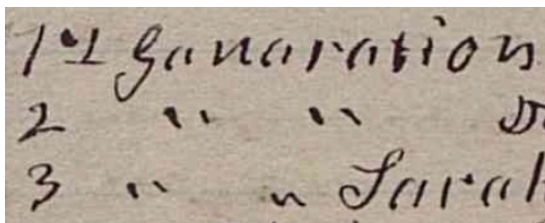 1st Ganaration
2 " "
3 " " Sarah